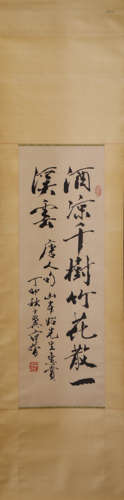 酒凉千樹竹花散一
溪雲
唐人句 山本 先生惠賞
丁卯秋子翼范曾